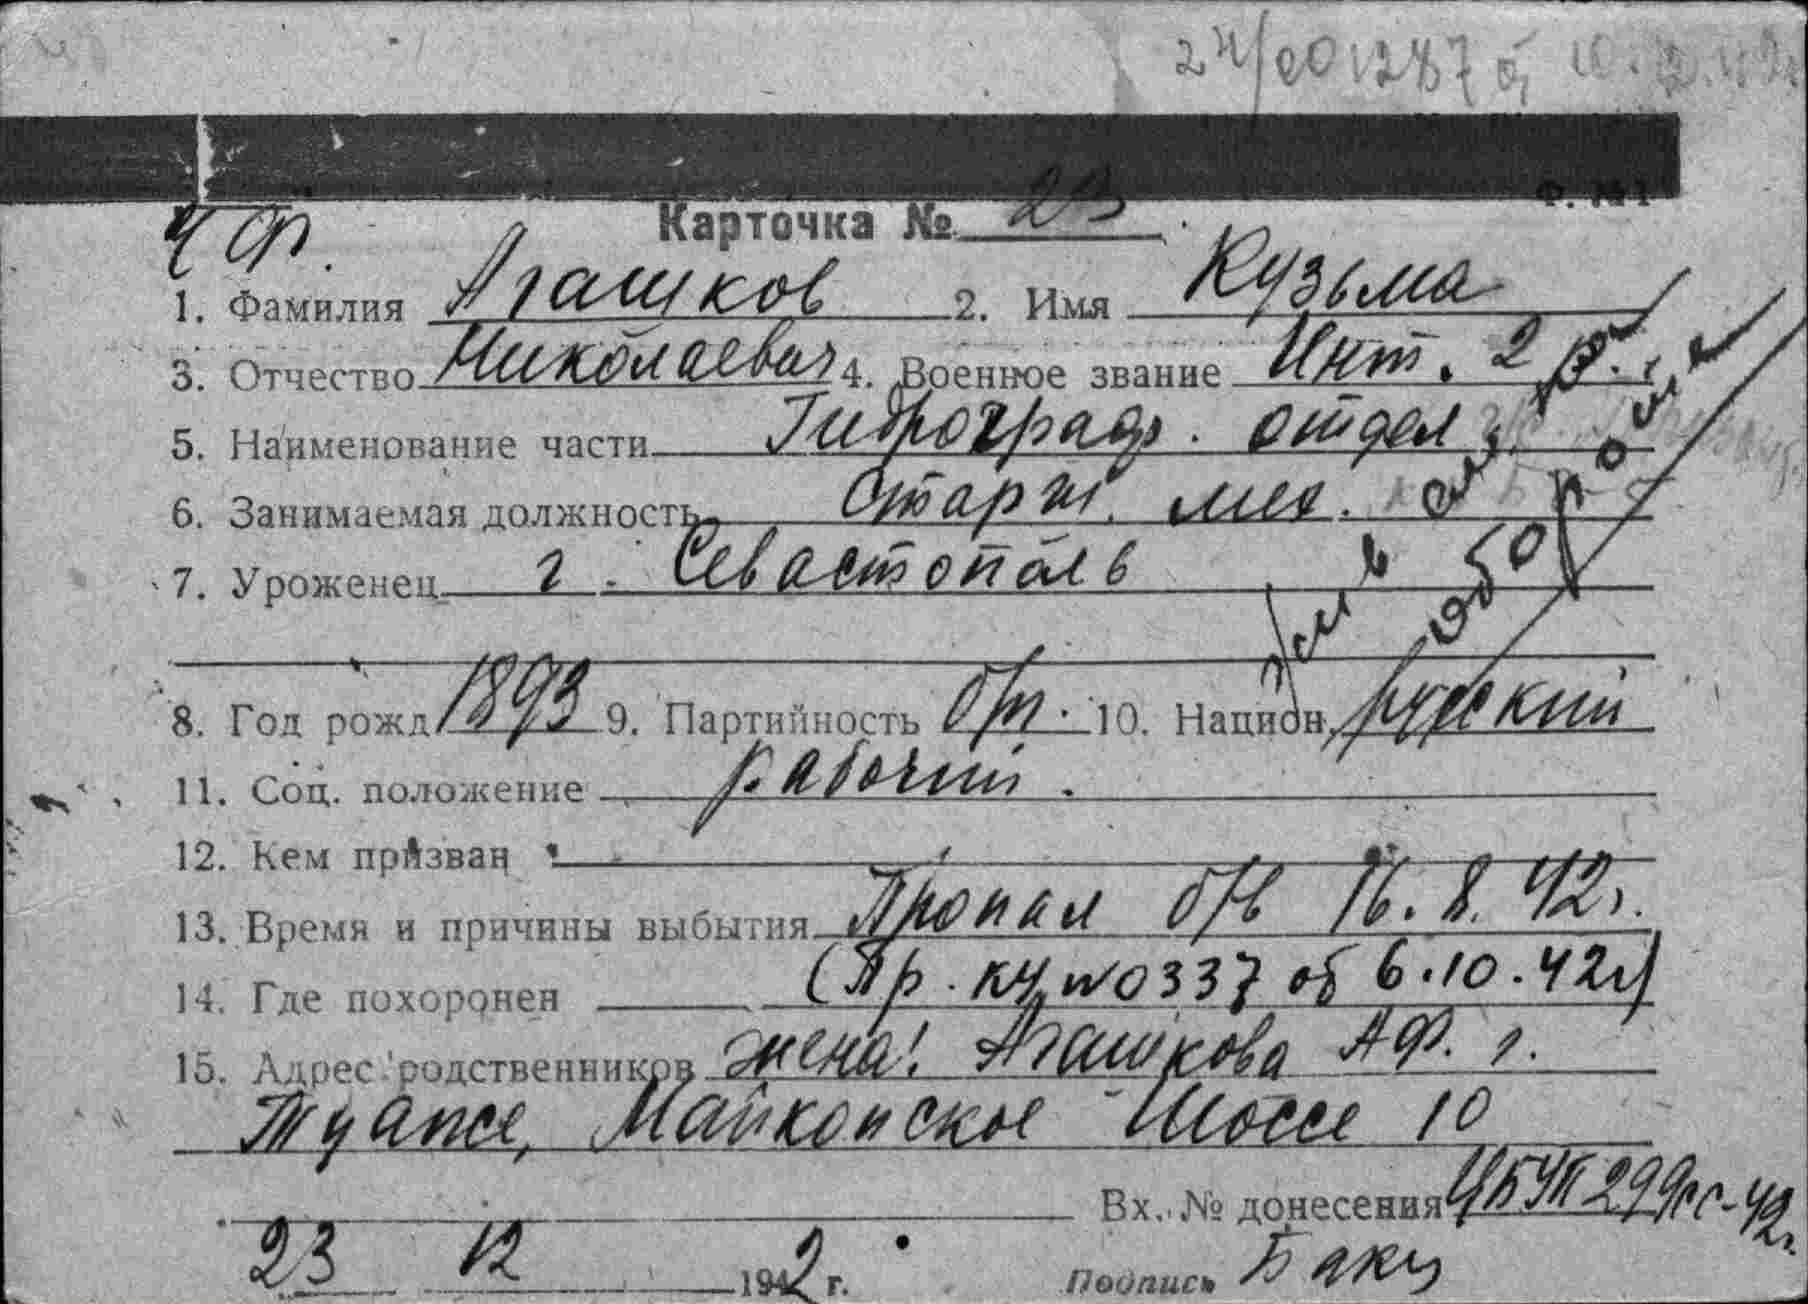 Ф. №1
Карточка № 23
ЧФ.
1. Фамилия Агашков 2. Имя Кузьма
3. Отчество Николаевич 4. Военное звание Инт. 2 р.
5. Наименование части Гидрограф. отдел
6. Занимаемая должность Старш. мех.
7. Уроженец г. Севастополь
8. Год рожд 1893 9. Партийность б/п. 10. Национ. русский
11. Соц. положение рабочий.
12. Кем призван
13. Время и причины выбытия Пропал б/в 16.8.42г.
14. Где похоронен (Пр. КЧ №0337 от 6.10.42г)
15. Адрес родственников жена: Агашкова А.Ф. г.
Туапсе, Майкопское Шоссе 10
Вх. № донесения ЦБУП 299сс-42г.
23 12 1942 г. Подпись